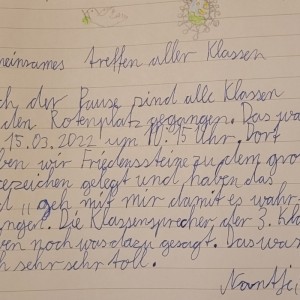 einsames treffen aller Klassen
ch der Pause sind alle Klassen
den Rotenplatz gegangen. Das wa
15.03.2022 um 10.15 Uhr. Dort
ben wir Friedenssteine zu dem gro
cezeichen gelegt und haben das
d „geh mit mir damit es wahr-
ngen. Die Klassensprecher der 3. Kla
en noch was dazu gesagt. Das war
ch sehr sehr toll.